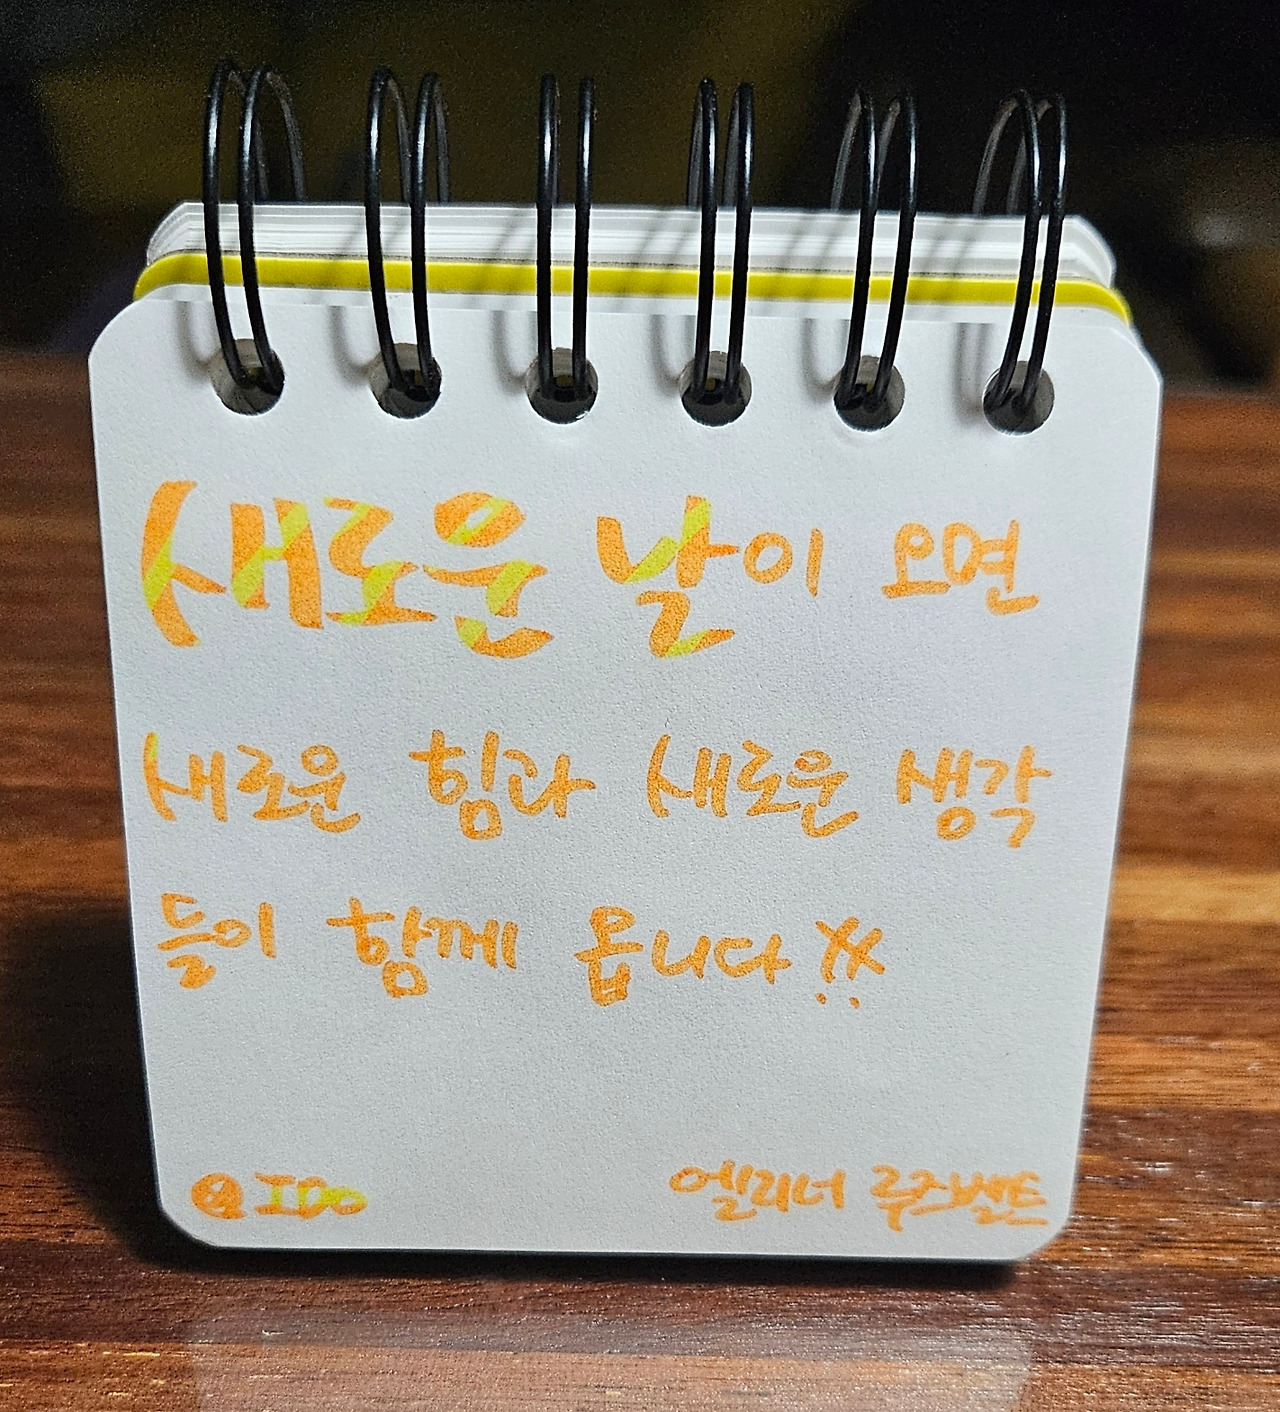 새로운 날이 오면
새로운 힘과 새로운 생각
들이 함께 옵니다
IDo 엘리너 루즈벨트